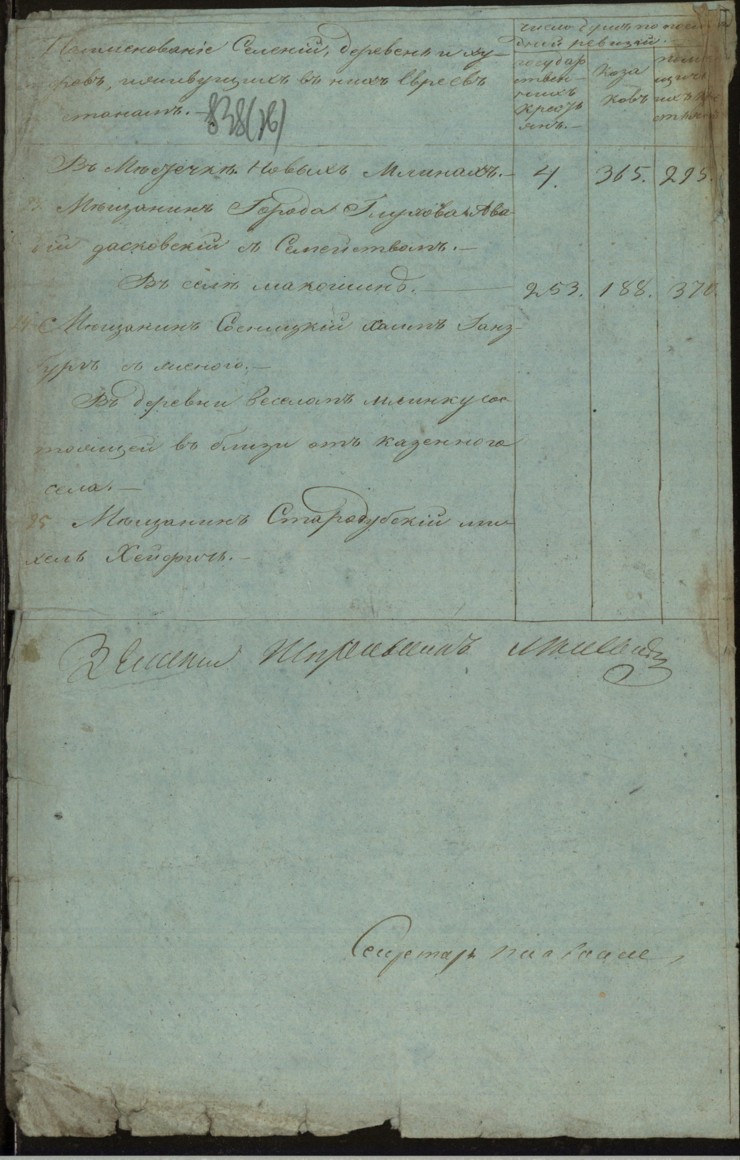 Наименованіе Селеній, деревень и ху-
торовъ, живущихъ въ нихъ Евреевъ
станамъ.-
838(16)
число душъ по послѣ
дней ревизіи.
государ
ствен-
ныхъ
кресть
янъ.-
Коза
ковъ
помѣ
щичь
ихъ
Въ Мѣстечкѣ Новыхъ Млинахъ.- 4. 365. 295.
23. Мѣщанинъ Города Глухова
дасковскій съ Семействомъ.-
Въ селѣ макошинѣ. 253. 188. 370.
24. Мѣщанинъ Сосницкій хаимъ Ганз
бургъ съ
Въ деревни Веселомъ млинку сос
тоящей въ близи отъ казеннаго
села.-
25 Мѣщанинъ Стародубскій ми-
хель Хейфичъ.-
Земскій
Секретарь